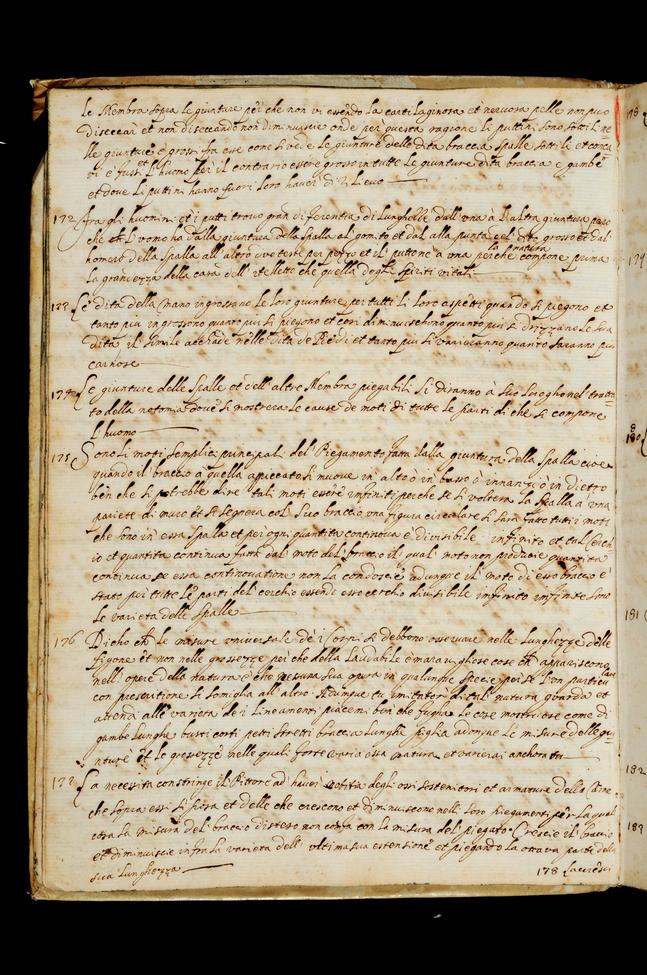 le Membra sopra le giunture per che non vi essendo la cartilaginosa et nervosa pelle non può
diseccar et non diseccando non diminuiscie onde per questa ragione li puttini sono sottili ne
lle giunture e grossi fra esse come si vede le giunture delle dita braccia spalle sottili et conca
vi et l'huomo per il contrario essere grosso in tutte le giunture dita braccia e gambe
et dove li puttini hanno fuori loro haver di rilievo
172 fra gli huomini et i putti trovo gran diferentia di lunghezze dall'una à l'altra giuntura
che l'uomo ha dalla giuntura della spalla al gomito et dal alla punta del dito grosso et dal
homero della spalla all'altro due teste per pezzo et il puttone a una perche la natura compone prima
la grandezza della casa dell'itelletto che quella degli spiriti vitali
173 Le dita della mano ingrossano le loro giunture per tutti li loro aspetti quando si piegono et
tanto più ingrossono quanto più si piegono et cosi diminuischono quanto più si drizzano le
dita il simile acchade nelle dita de Piedi et tanto più si varieranno quanto saranno più
carnose
174 Le giunture delle spalle et dell'altre Membra piegabili si diranno à suo loogho nel trata
to della notomia dove si mostrera le cause de moti di tutte le parti di che si compone
l'huomo
175 Sono li moti semplici principali del Piegamento fatti dalla giuntura della spalla cioe
quando il braccio à quella apiccato si muove in alto ò in basso ò innanzi ò in dietro
ben che si potrebbe dire tali moti essere infiniti perche se si voltera la spalla à una
pariete di muro et si segnera col suo braccio una figura circulare si sara fatto tutti i moti
che sono in essa spalla et per ogni quantita continova e divisibile infinito et tal cerch
io et quantita continua fatta dal moto del braccio il qual moto non produce quantita
continua se essa continovatione non la conduscie adunque il moto di esso braccio è
stato per tutte le parti del cerchio essendo esso cerchio divisibile infinito infinite sono
le varieta delle spalle
176 Dicho che le misure universale de i corpi si debbono osservare nelle lunghezze delle
figure et non nelle grossezze per che della laudabile e maravigliose cose ch' appariscono
nell'opere della natura è che nessuna sua opera in qualunque specie per se l'un particulare
con prescisione si somiglia all'altro Adunque tu imitator di tal natura guarda et
attendi alle varieta de i lineamenti piacemi ben che fugha le cose mostruose come di
gambe lunghe busti corti petti stretti braccia lunghe piglia adonque le misure delle giu
nture et le grossezze nelle quali forte varia essa natura et varierai anchora tu
177 La necessita constringe il Pittore ad haver notitia degli ossi sostenitori et armature della carne
che sopra essi si posa et delle che crescono et diminuiscono nelli loro piegamenti per la qual
cosa la misura del braccio disteso non confa con la misura del piegato. Crescie il braccio
et diminuiscie infra la varieta dell'ultima sua estensione et piegando la ottava parte della
sua lunghezza
178
179
180
181
182
183